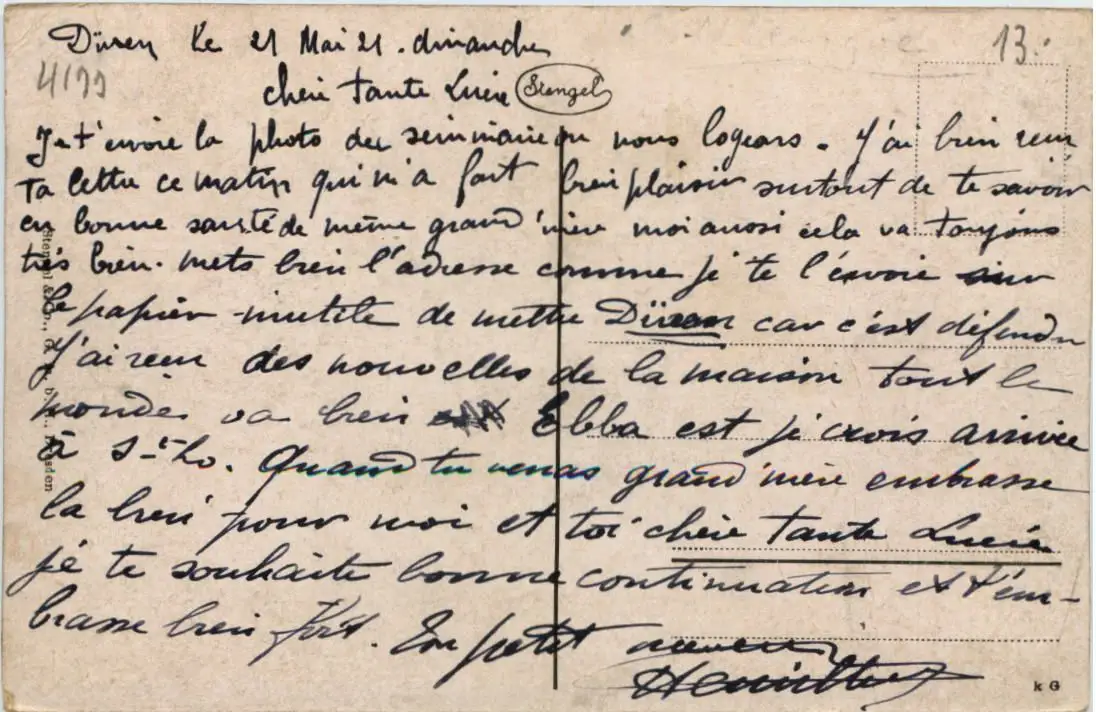 Düren le 21 Mai 21. dimanche
13.
4199
chère Tante Lucie
Stengel
Je t'envoie la photo du seminaire ou nous logeons. J'ai bien reçu
ta lettre ce matin qui m'a fait bien plaisir surtout de te savoir
en bonne santé de même grand'mère moi aussi cela va toujours
très bien. mets bien l'adresse comme je te l'envoie sur
le papier inutile de mettre Düren car c'est défendu
J'ai reçu des nouvelles de la maison tout le
monde va bien Ebba est je crois arrivée
à St-Lo. Quand tu verras grand'mère embrasse
la bien pour moi et toi chère Tante Lucie
je te souhaite bonne continuation et t'em-
brasse bien fort. Ton petit neveu
k G